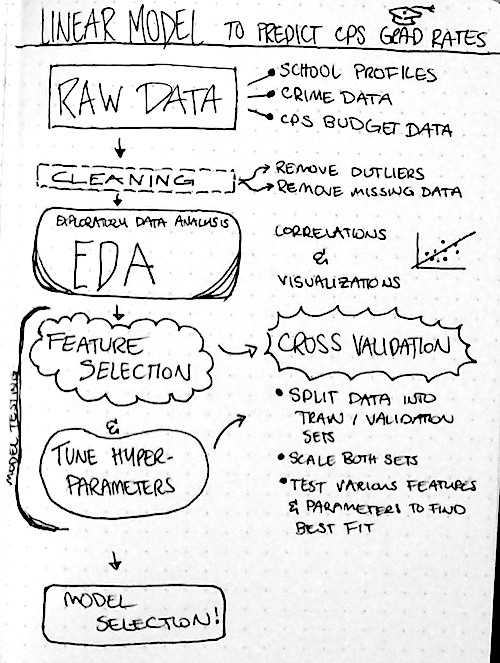 LINEAR MODEL TO PREDICT CPS GRAD RATES
RAW DATA
• SCHOOL PROFILES
• CRIME DATA
• CPS BUDGET DATA
CLEANING
REMOVE OUTLIERS
REMOVE MISSING DATA
EXPLORATORY DATA ANALYSIS
EDA
CORRELATIONS
&
VISUALIZATIONS
MODEL TESTING
FEATURE
SELECTION
&
TUNE HYPER-
PARAMETERS
CROSS VALIDATION
• SPLIT DATA INTO
TRAIN / VALIDATION
SETS
• SCALE BOTH SETS
• TEST VARIOUS FEATURES
& PARAMETERS TO FIND
BEST FIT
MODEL
SELECTION!